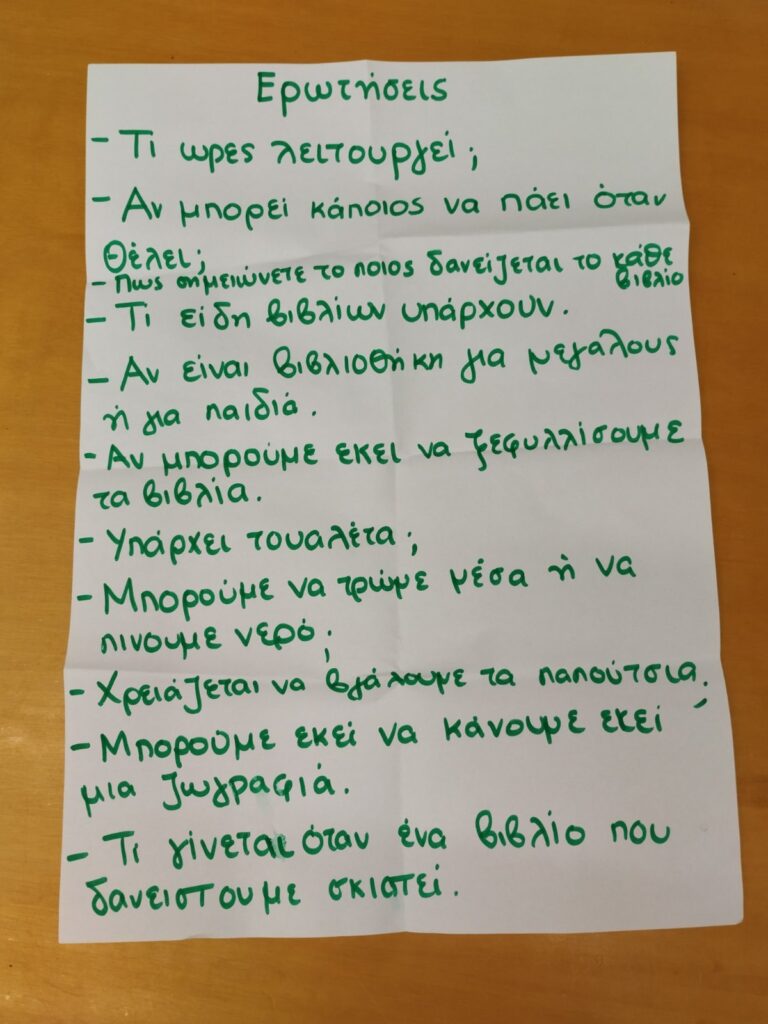 Ερωτήσεις
- Τι ωρες λειτουργεί;
- Αν μπορεί κάποιος να πάει όταν
θέλει;
- Πως σημειώνετε το ποιος δανείζεται το κάθε
βιβλίο
- Τι είδη βιβλίων υπάρχουν.
- Αν είναι βιβλιοθήκη για μεγάλους
ή για παιδιά.
- Αν μπορούμε εκει να ξεφυλλίσουμε
τα βιβλία.
- Υπάρχει τουαλέτα;
- Μπορούμε να τρώμε μέσα ή να
πινουμε νερό;
- Χρειάζεται να βγάλουμε τα παπούτσια.
- Μπορούμε εκεί να κάνουμε εκεί
μια ζωγραφιά.
- Τι γίνεται όταν ένα βιβλίο που
δανειστουμε σκιστεί.